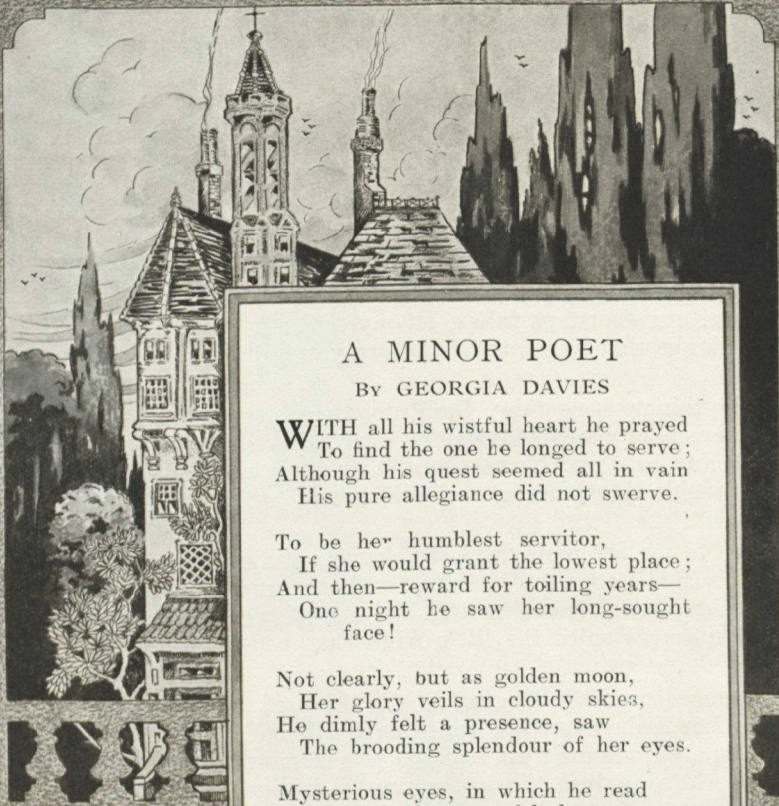 A MINOR POET
BY GEORGIA DAVIES
WITH all his wistful heart he prayed
To find the one he longed to serve;
Although his quest seemed all in vain
His pure allegiance did not swerve.
To be her humblest servitor,
If she would grant the lowest place;
And then—reward for toiling years—
One night he saw her long-sought
face!
Not clearly, but as golden moon,
Her glory veils in cloudy skies,
He dimly felt a presence, saw
The brooding splendour of her eyes.
Mysterious eyes, in which he read